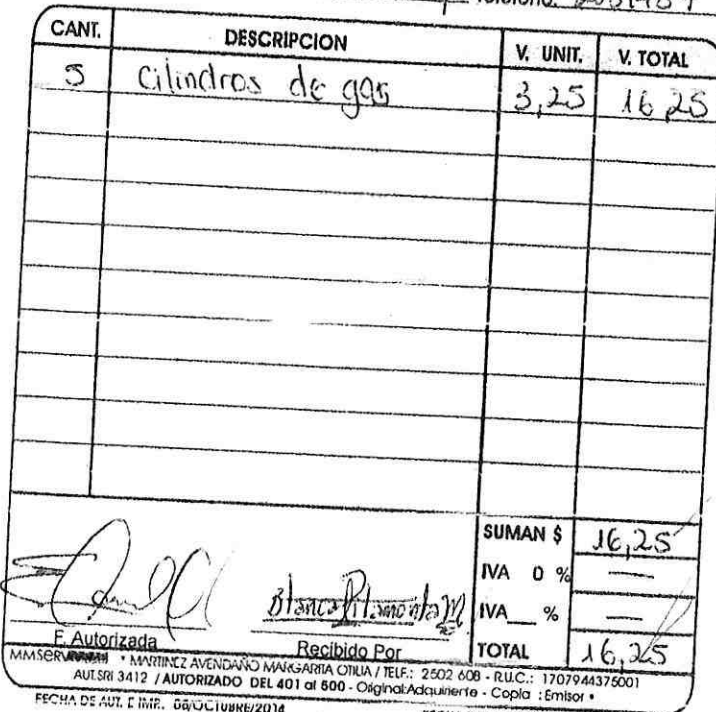 CANT. DESCRIPCION V. UNIT. V. TOTAL
5 Cilindros de gas 3,25 16,25
SUMAN $ 16,25
IVA 0 % —
IVA__ % —
TOTAL 16,25
F. Autorizada Recibido Por
MARTINEZ AVENDAÑO MARGARITA OTILIA / TELF.: 2502 608 - R.U.C.: 1707944375001
AUT.SRI 3412 / AUTORIZADO DEL 401 al 500 - Original:Adquiriente - Copia : Emisor •
FECHA DE AUT. E IMP. 06/OCTUBRE/2014